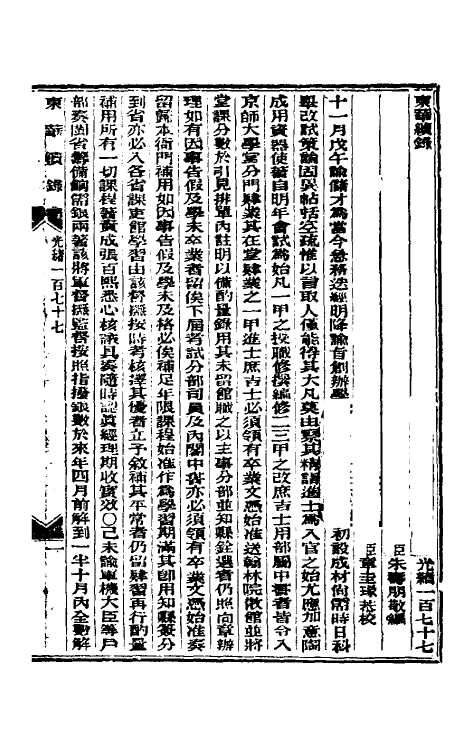 東華續錄
光緒一百七十七
臣朱壽朋敬編
臣章圭瑑恭校
十一月戊午諭儲才爲當今急務迭經明降諭旨創辦學堂
初設成材尚需時日科
舉改試策論固異帖括空疏惟以言取人僅能得其大凡莫由察其精詣進士爲入官之始尤應加意陶
成用資器使著自明年會試爲始凡一甲之授職修撰編修二三甲之改庶吉士用部屬中書者皆令入
京師大學堂分門肄業其在堂肄業之一甲進士庶吉士必須領有卒業文憑始准送翰林院散館並將
堂課分數於引見排單內註明以備酌量錄用其未留館職之以主事分部並知縣銓選者仍照向章辦
理如有因事告假及學未卒業者留俟下屆考試分部司員及內閣中書亦必須領有卒業文憑始准奏
留歸本衙門補用如因事告假及學未及格必俟補足年限課程始准作爲學習期滿其卽用知縣簽分
到省亦必入各省課吏館學習由該督撫按時考核擇其優者立予敘補其平常者仍留肄習再行酌量
補用所有一切課程著責成張百熙悉心核議具奏隨時認真經理期收實效○己未諭軍機大臣等戶
部奏閩省籌備餉需銀兩著該將軍督撫監督按照指撥銀數於來年四月前解到一半十月內全數解
東華續錄
光緒一百七十七